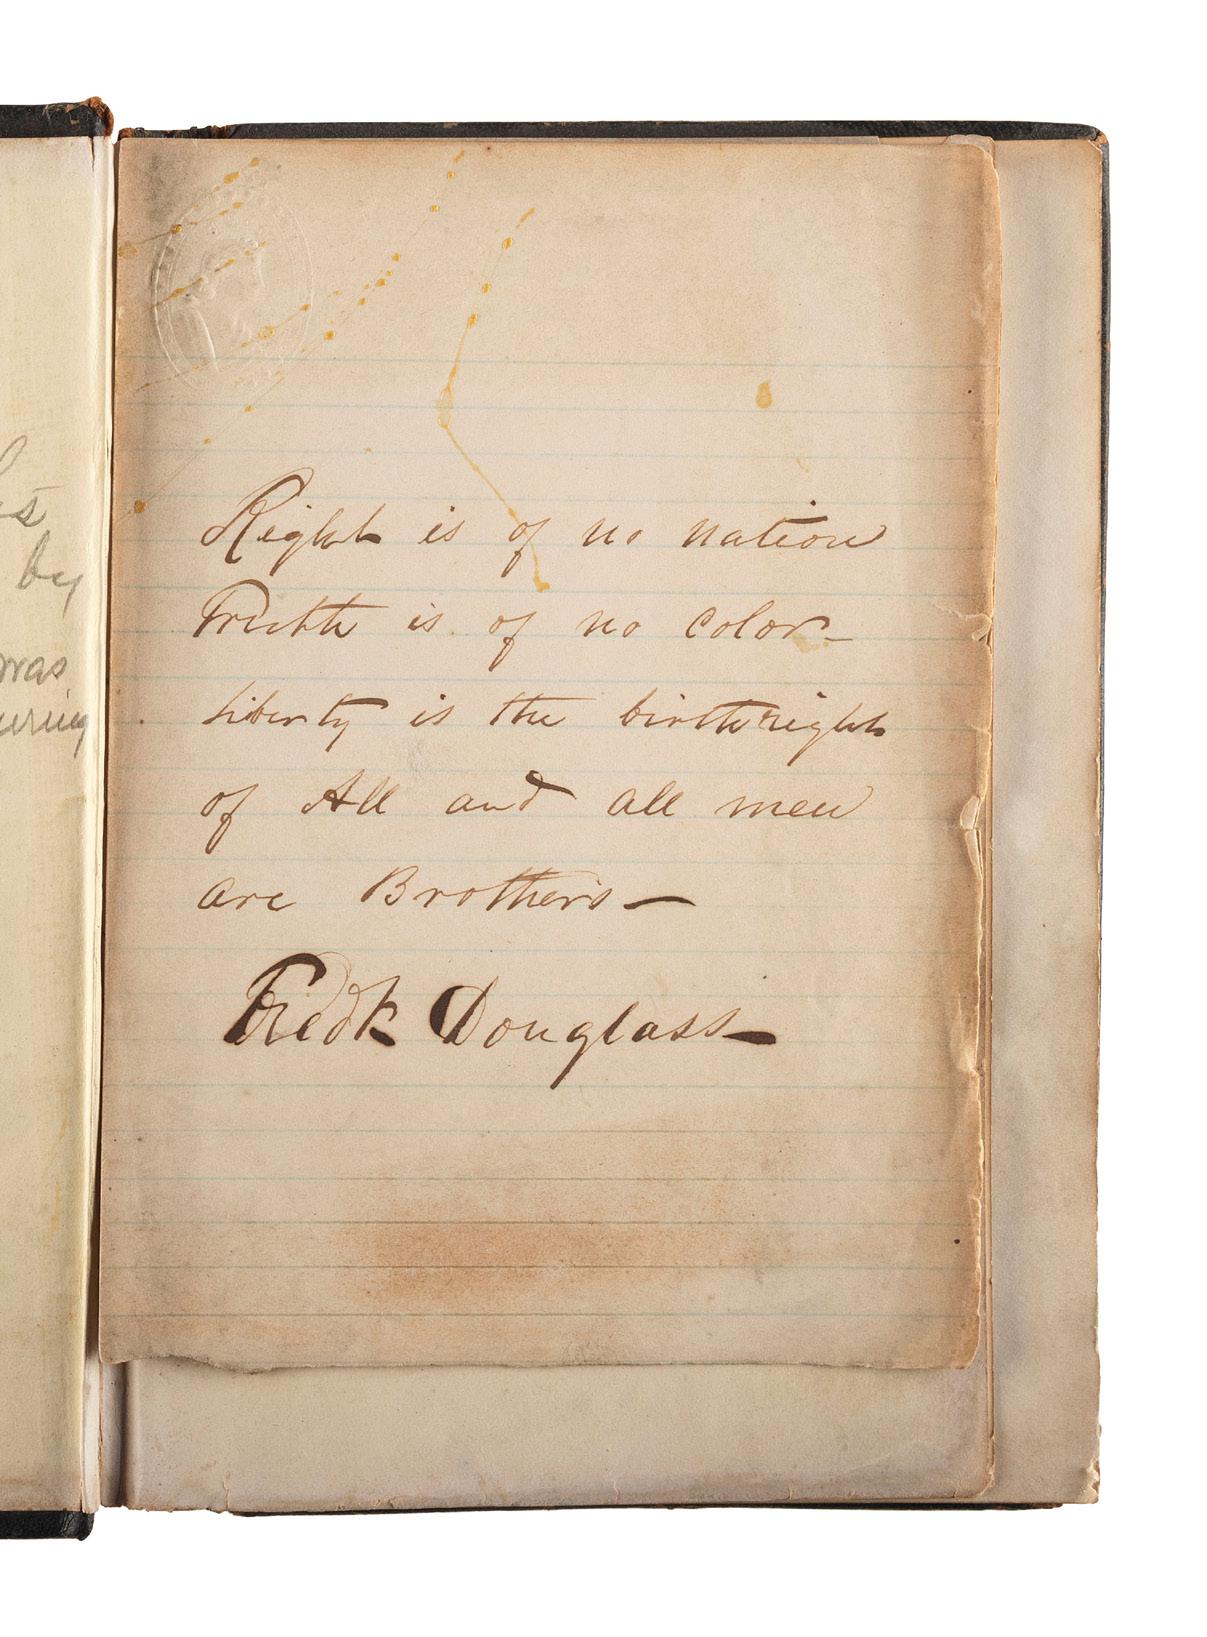 by
was
Right is of no nation
Truth is of no color—
Liberty is the birthright
of All and all men
are Brothers—
Fredk Douglass—